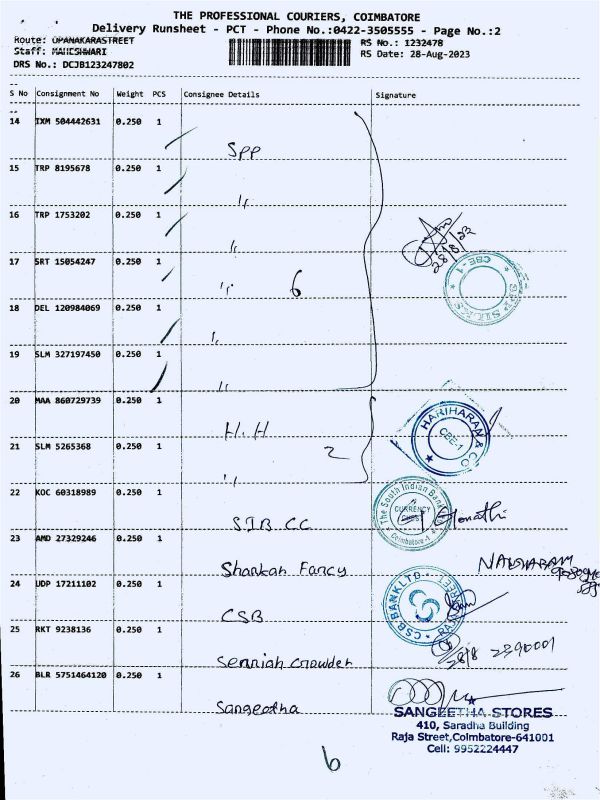 THE PROFESSIONAL COURIERS, COIMBATORE
Delivery Runsheet - PCT - Phone No.:0422-3505555 - Page No.:2
Route: OPANAKARASTREET
RS No.: 1232478
Staff: MAHESHWARI
RS Date: 28-Aug-2023
DRS No.: DCJB123247802
S No Consignment No Weight PCS Consignee Details Signature
14 IXM 504442631 0.250 1
SPP
15 TRP 8195678 0.250 1
"
16 TRP 1753202 0.250 1
"
28/8/23
17 SRT 15054247 0.250 1
" 6
CBE-1
SPP SILKS
18 DEL 120984069 0.250 1
"
19 SLM 327197450 0.250 1
"
20 MAA 860729739 0.250 1
H.H
HARIHARAN & CO
CBE-1
21 SLM 5265368 0.250 1
" 2
22 KOC 60318989 0.250 1
The South Indian Bank
CURRENCY CHEST
Coimbatore-1
SIB CC
23 AMD 27329246 0.250 1
Shankah Fancy
24 UDP 17211102 0.250 1
CSB BANK LTD
CSB
25 RKT 9238136 0.250 1
28/8
26 BLR 5751464120 0.250 1
Sangeetha
SANGEETHA STORES
410, Saradha Building
Raja Street,Coimbatore-641001
Cell: 9952224447
6